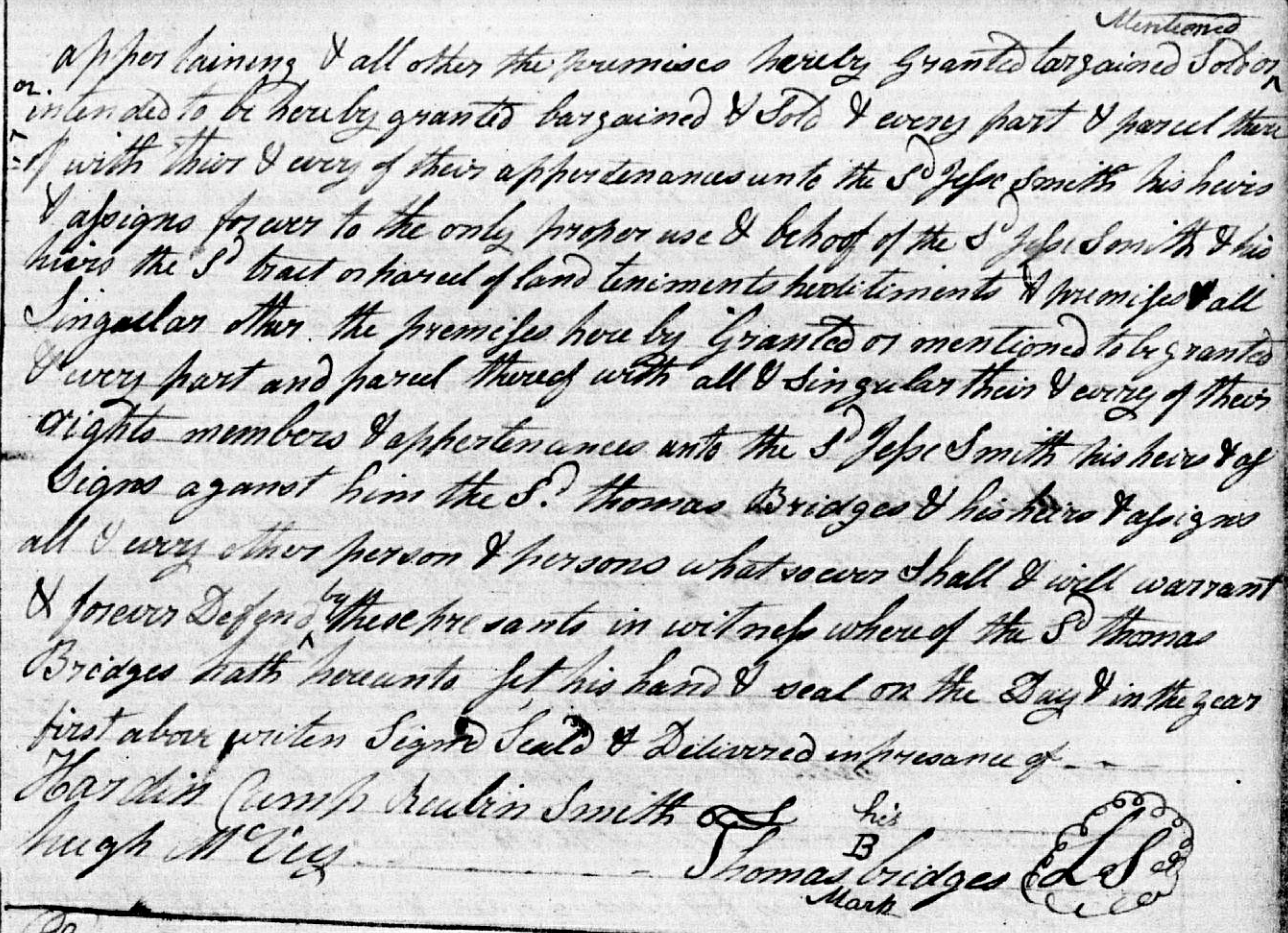 Mentioned
appertaining & all other the premises hereby Granted bargained Sold or
or
intended to be hereby granted bargained & Sold & every part & parcel there
=of with their & every of their appertenances unto the Sd Jesse Smith his heirs
& assigns forever to the only proper use & behoof of the Sd Jesse Smith & his
hiers the Sd tract or parcel of land teniments herditiments & premises & all
Singular other the premeses here by Granted or mentioned to be granted
& every part and parcel thereof with all & Singular their & every of their
rights members & appertenances unto the Sd Jesse Smith his heirs & as
Signs against him the Sd. thomas Bridges & his heirs & assigns
all & every other person & persons what so ever Shall & will warrant
by
& forever Defend these presants in witness where of the Sd thomas
Bridges hath hereunto Set his hand & seal on the Day & in the year
first above writen Signd Seald & Delivered in presance of
Hardin Camp Reubin Smith
his
hugh McVey
B
Thomas bridges LS
Mark